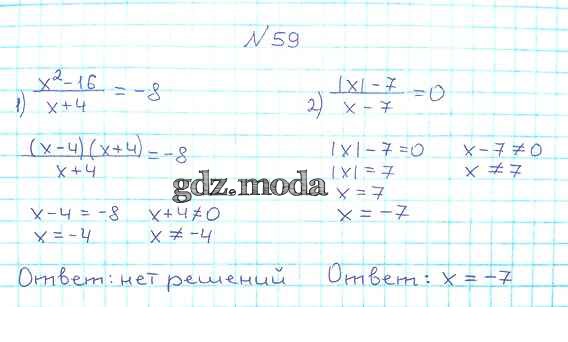 N 59
1) x²-16 / x+4 = -8
(x-4)(x+4) / x+4 = -8
x-4 = -8   x+4≠0
x = -4   x ≠ -4
Ответ: нет решений
2) |x|-7 / x-7 = 0
|x|-7=0   x-7≠0
|x|=7   x≠7
x=7
x=-7
Ответ: x=-7
gdz.moda